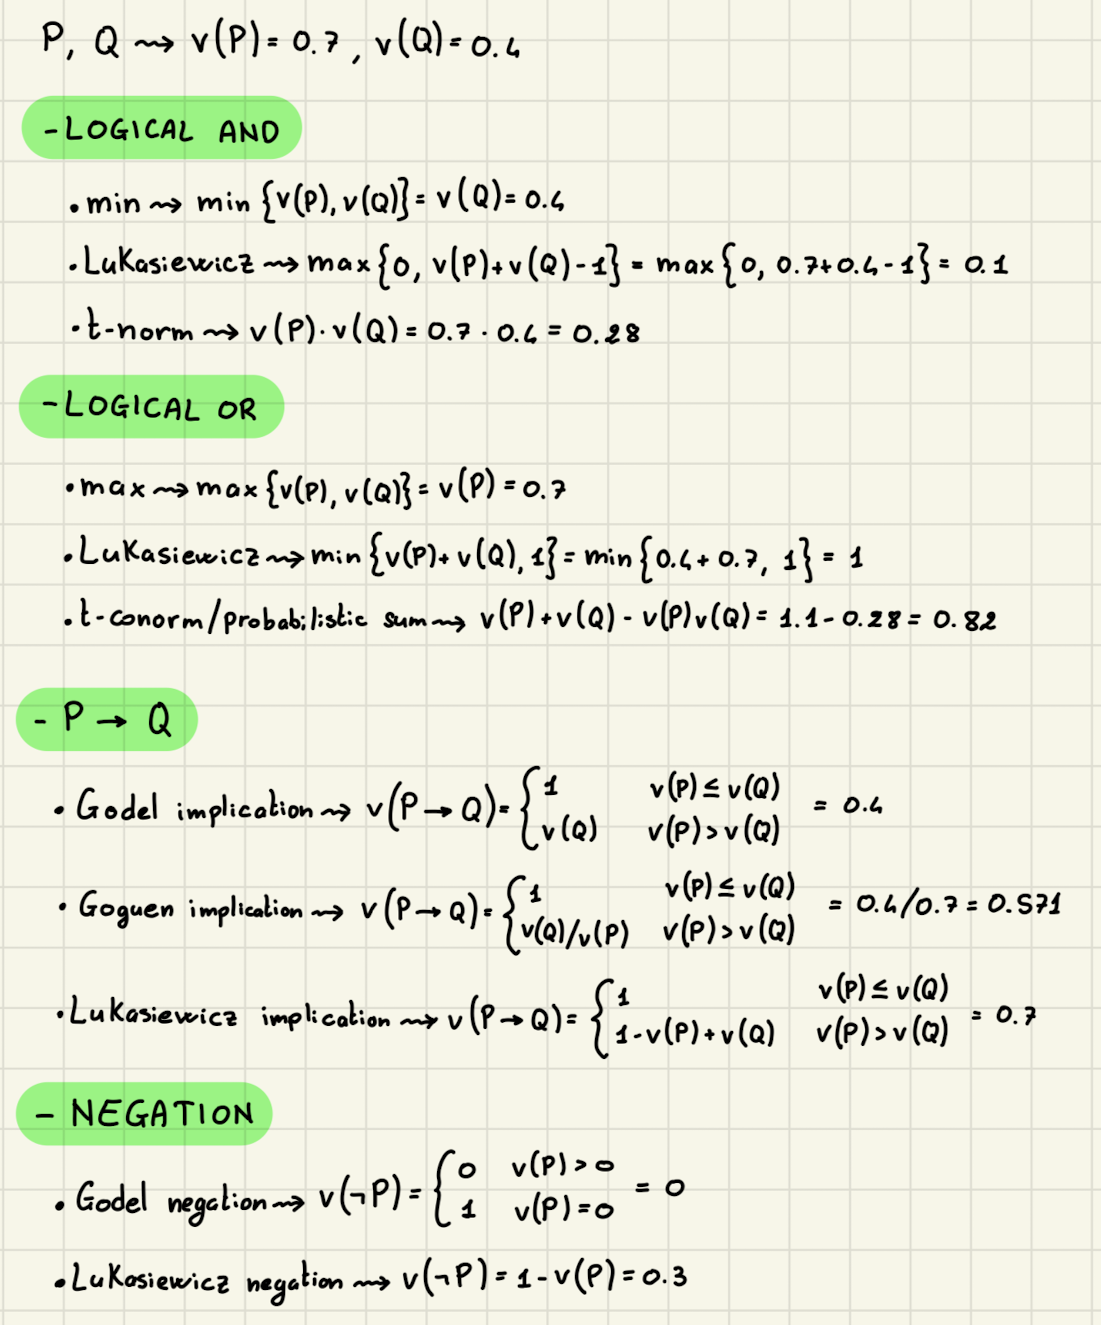 P, Q ⇝ v(P) = 0.7 , v(Q) = 0.4
- LOGICAL AND
• min ⇝ min {v(P), v(Q)} = v(Q) = 0.4
• Lukasiewicz ⇝ max {0, v(P)+v(Q)-1} = max {0, 0.7+0.4-1} = 0.1
• t-norm ⇝ v(P)·v(Q) = 0.7 · 0.4 = 0.28
- LOGICAL OR
• max ⇝ max {v(P), v(Q)} = v(P) = 0.7
• Lukasiewicz ⇝ min {v(P)+ v(Q), 1} = min {0.4+ 0.7, 1} = 1
• t-conorm/probabilistic sum ⇝ v(P)+v(Q) - v(P)v(Q) = 1.1 - 0.28 = 0.82
- P → Q
• Godel implication ⇝ v(P → Q) = { 1 v(P) ≤ v(Q)
v(Q) v(P) > v(Q) = 0.4
• Goguen implication ⇝ v(P → Q) = { 1 v(P) ≤ v(Q)
v(Q)/v(P) v(P) > v(Q) = 0.4/0.7 = 0.571
• Lukasiewicz implication ⇝ v(P → Q) = { 1 v(P) ≤ v(Q)
1-v(P)+v(Q) v(P) > v(Q) = 0.7
- NEGATION
• Godel negation ⇝ v(¬P) = { 0 v(P) > 0
1 v(P) = 0 = 0
• Lukasiewicz negation ⇝ v(¬P) = 1 - v(P) = 0.3